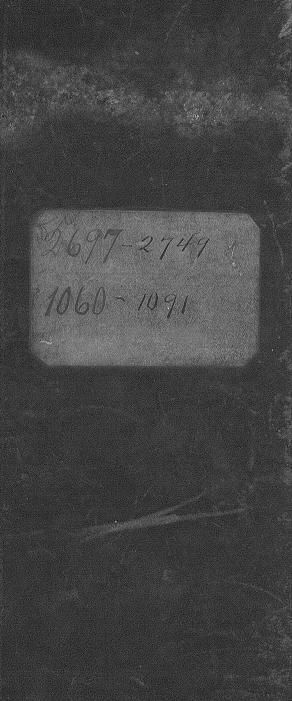 2697-2749
1060-1091